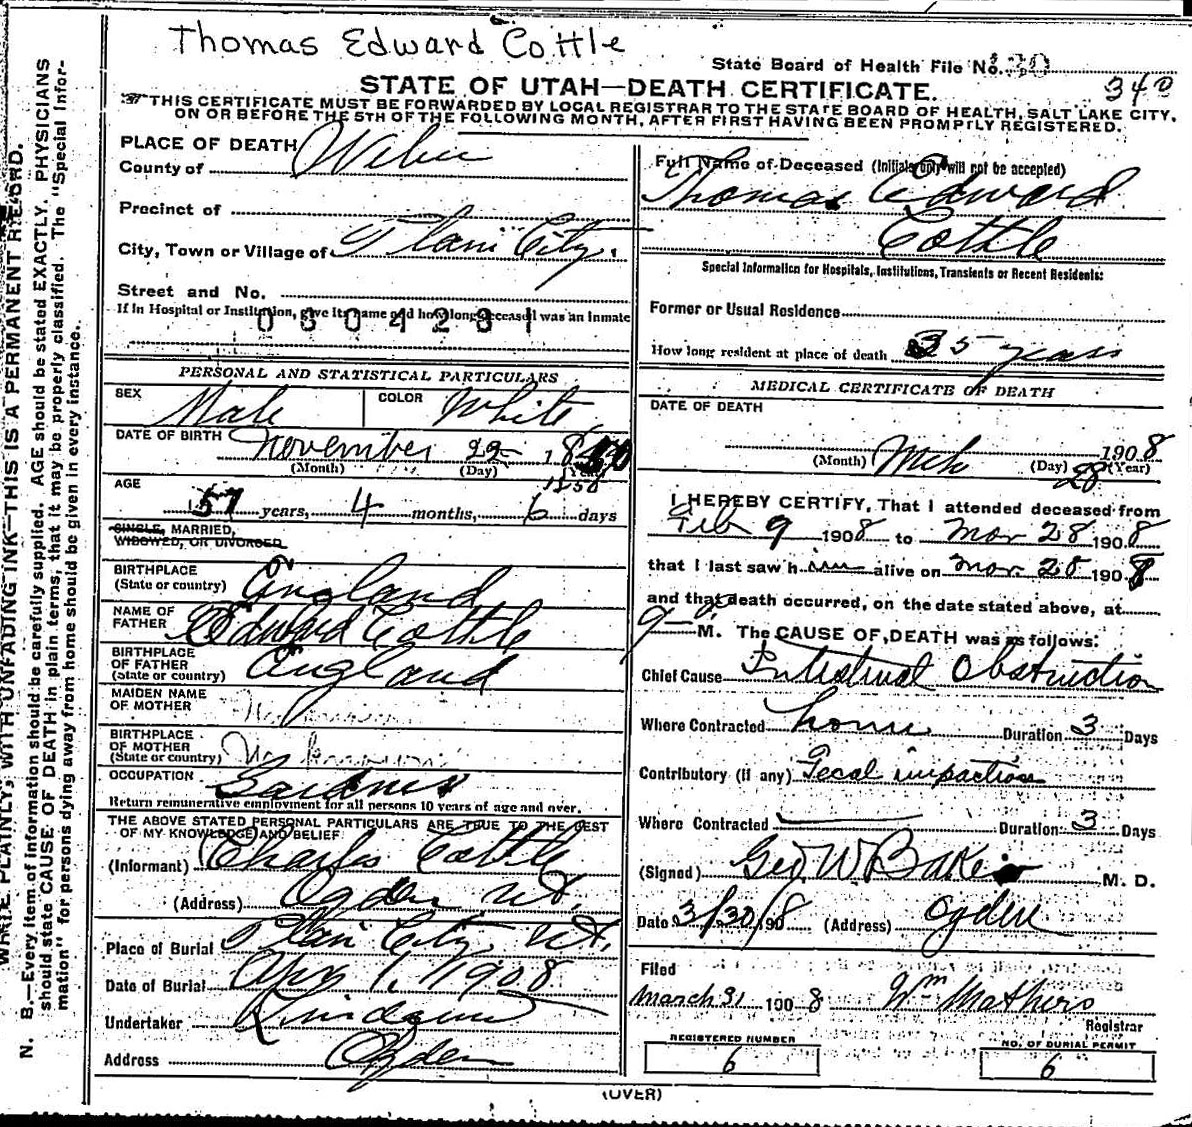 Thomas Edward Cottle
State Board of Health File No. 130
340
STATE OF UTAH—DEATH CERTIFICATE.
THIS CERTIFICATE MUST BE FORWARDED BY LOCAL REGISTRAR TO THE STATE BOARD OF HEALTH, SALT LAKE CITY,
ON OR BEFORE THE 5TH OF THE FOLLOWING MONTH, AFTER FIRST HAVING BEEN PROMPTLY REGISTERED.
PLACE OF DEATH
County of Weber
Precinct of
City, Town or Village of Plain City.
Street and No.
If in Hospital or Institution, give its name and how long deceased was an inmate
0304281
PERSONAL AND STATISTICAL PARTICULARS
SEX Male COLOR White
DATE OF BIRTH November 22 1850
(Month) (Day) (Year)
AGE
57 years, 4 months, 6 days
SINGLE, MARRIED,
WIDOWED, OR DIVORCED
BIRTHPLACE
(State or country) England
NAME OF
FATHER Edward Cottle
BIRTHPLACE
OF FATHER
(State or country) England
MAIDEN NAME
OF MOTHER Unknown
BIRTHPLACE
OF MOTHER
(State or country) Unknown
OCCUPATION Gardner
Return remunerative employment for all persons 10 years of age and over.
THE ABOVE STATED PERSONAL PARTICULARS ARE TRUE TO THE BEST
OF MY KNOWLEDGE AND BELIEF
(Informant) Charles Cottle
(Address) Ogden Ut.
Place of Burial Plain City, Ut.
Date of Burial Apr 1, 1908
Undertaker
Address Ogden
Full Name of Deceased (Initials only will not be accepted)
Thomas Edward
Cottle
Special Information for Hospitals, Institutions, Transients or Recent Residents:
Former or Usual Residence
How long resident at place of death 35 years
MEDICAL CERTIFICATE OF DEATH
DATE OF DEATH
Mch 28 1908
(Month) (Day) (Year)
I HEREBY CERTIFY, That I attended deceased from
Feb 9 1908 to Mar 28 1908
that I last saw him alive on Mar. 28 1908
and that death occurred, on the date stated above, at
9 P M. The CAUSE OF DEATH was as follows:
Chief Cause Intestinal Obstruction
Where Contracted home Duration 3 Days
Contributory (if any) Fecal impaction
Where Contracted Duration 3 Days
(Signed) Geo. W. Baker M. D.
Date 3/30/1908 (Address) Ogden
Filed
March 31 1908 Wm Mathers
Registrar
REGISTERED NUMBER
6
NO. OF BURIAL PERMIT
6
(OVER)
WRITE PLAINLY, WITH UNFADING INK—THIS IS A PERMANENT RECORD.
N. B.—Every item of information should be carefully supplied. AGE should be stated EXACTLY. PHYSICIANS
should state CAUSE OF DEATH in plain terms, that it may be properly classified. The "Special Infor-
mation" for persons dying away from home should be given in every instance.